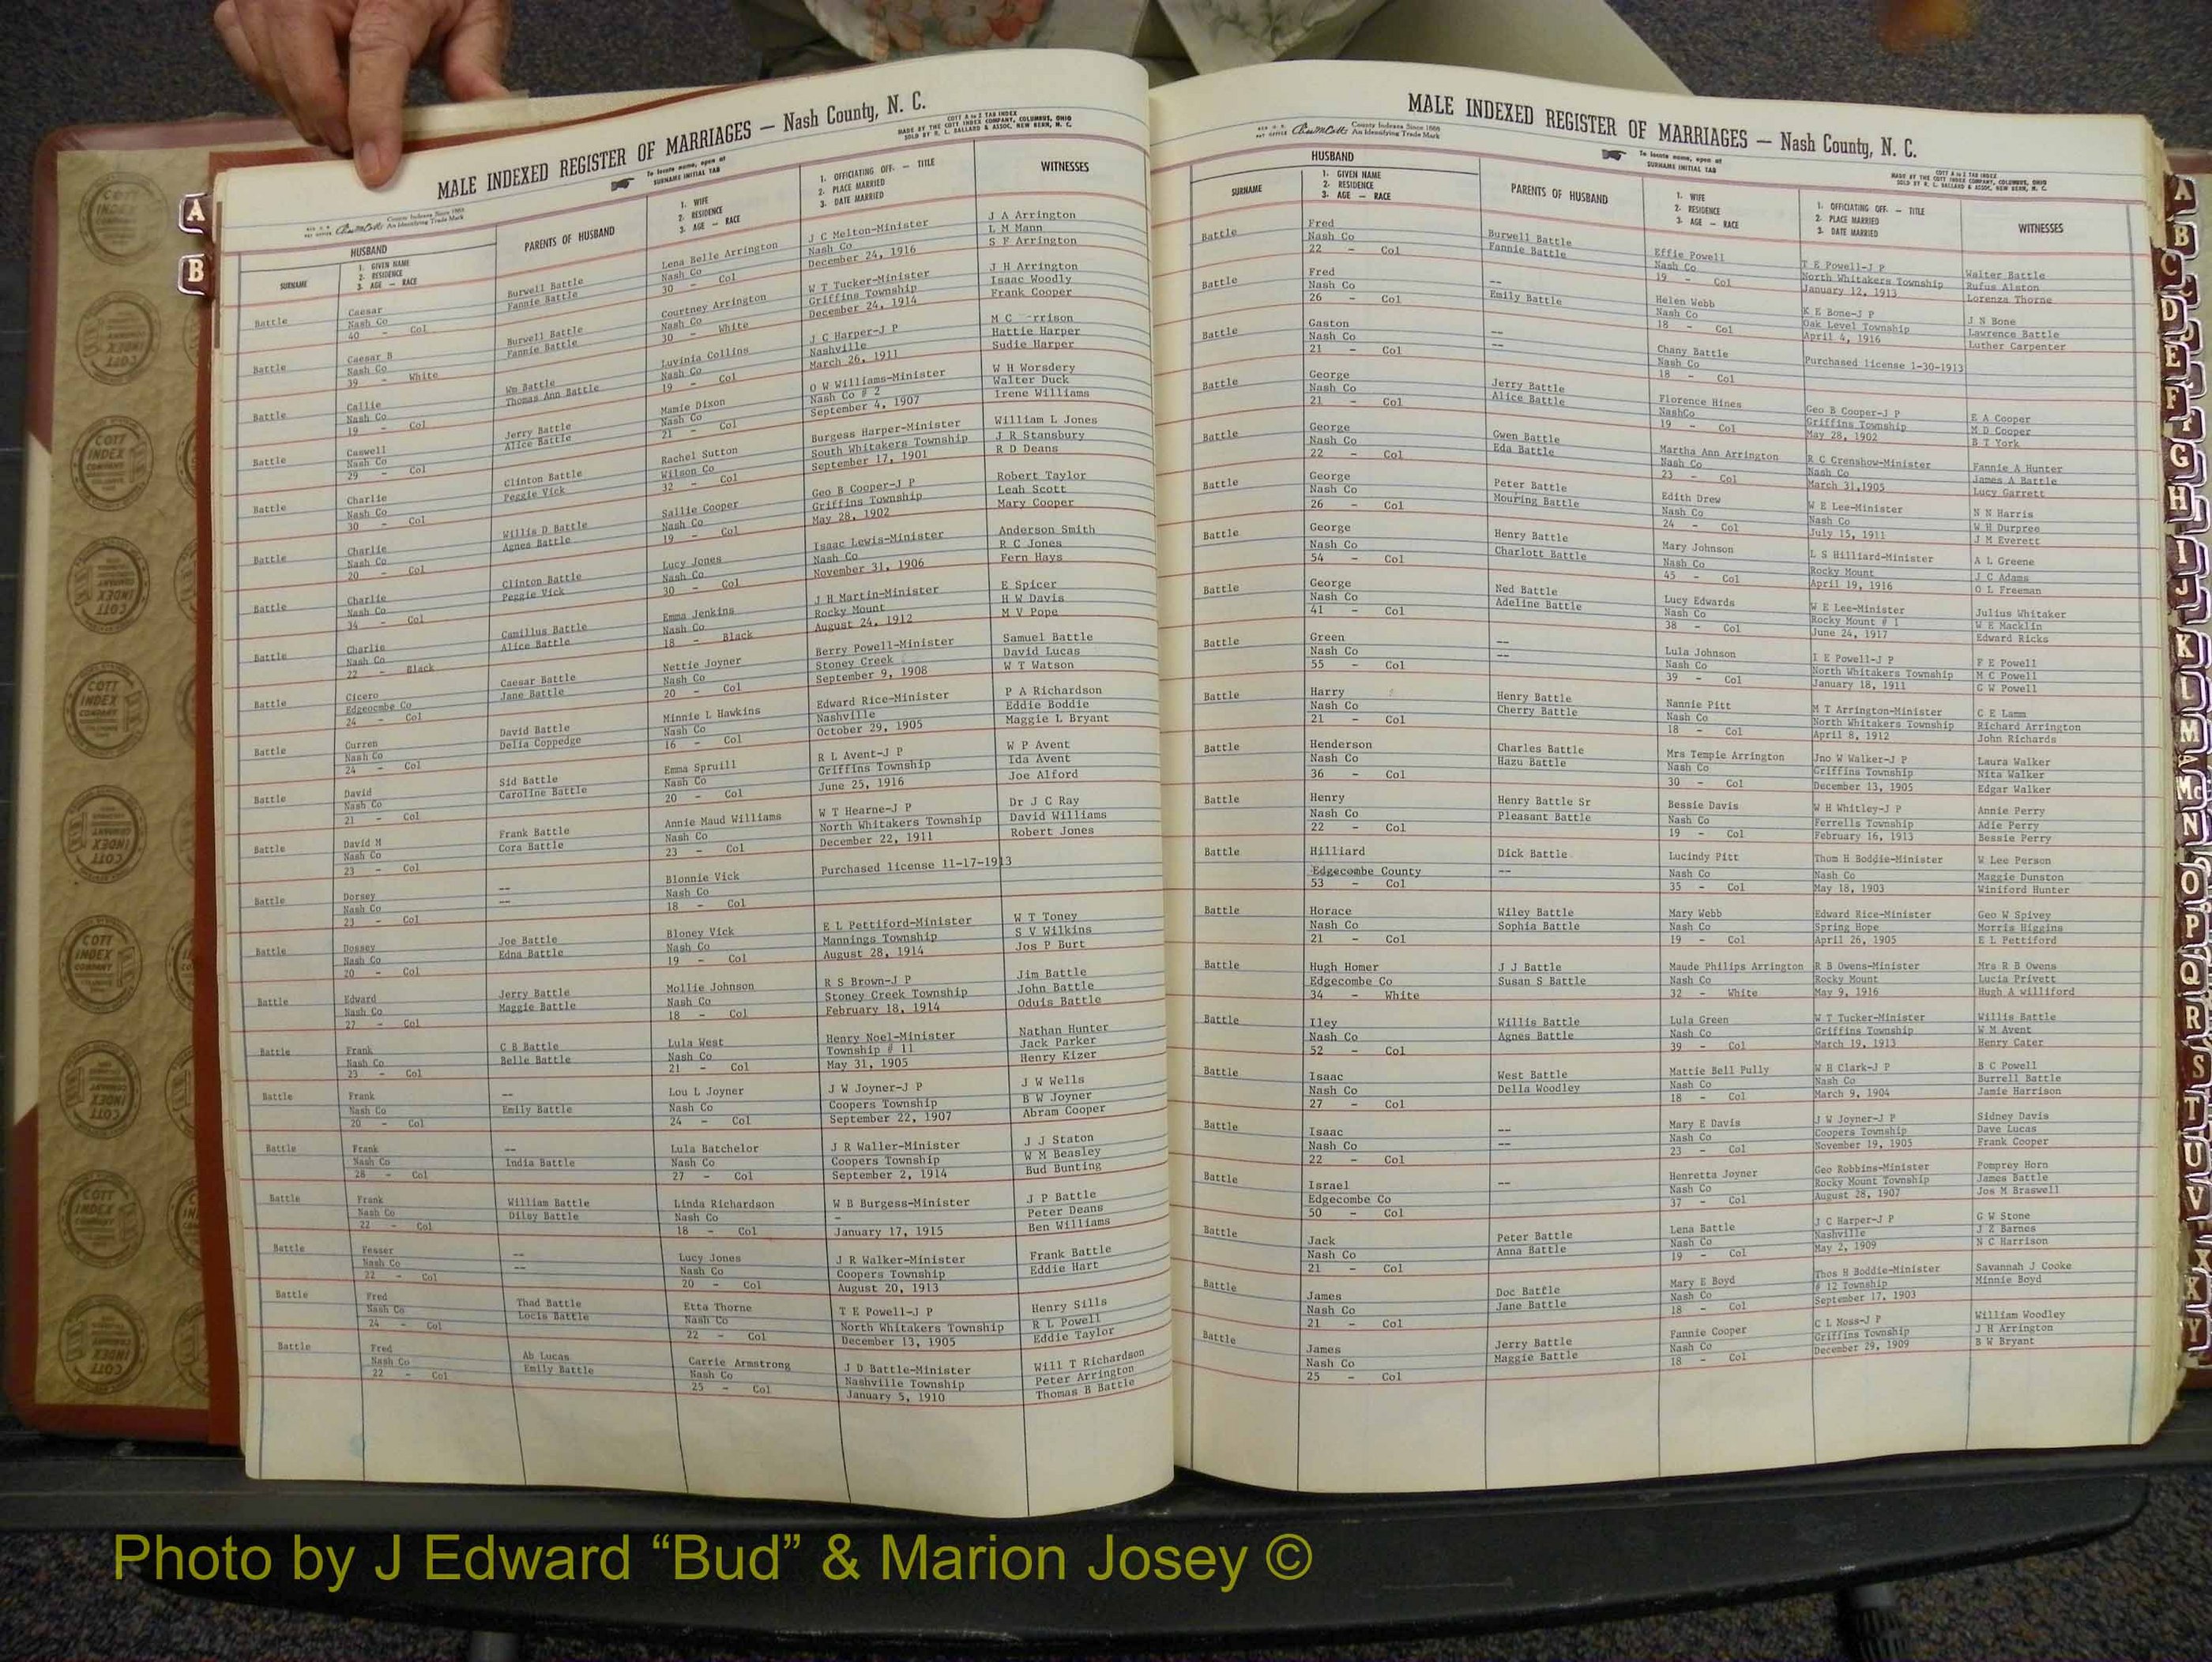 MALE INDEXED REGISTER OF MARRIAGES — Nash County, N. C.
COTT A to Z TAB INDEX
MADE BY THE COTT INDEX COMPANY, COLUMBUS, OHIO
SOLD BY R. L. BALLARD & ASSOC. NEW BERN, N. C.
To locate name, open at
SURNAME INITIAL TAB
County Indexes Since 1888
An Identifying Trade Mark
HUSBAND
SURNAME
1. GIVEN NAME
2. RESIDENCE
3. AGE — RACE
PARENTS OF HUSBAND
1. WIFE
2. RESIDENCE
3. AGE — RACE
1. OFFICIATING OFF. — TITLE
2. PLACE MARRIED
3. DATE MARRIED
WITNESSES
Battle Caesar Burwell Battle Lena Belle Arrington J C Melton-Minister J A Arrington
Nash Co Fannie Battle Nash Co Nash Co L M Mann
40 - Col 30 - Col December 24, 1916 S F Arrington
Battle Caesar B Burwell Battle Courtney Arrington W T Tucker-Minister J H Arrington
Nash Co Fannie Battle Nash Co Griffins Township Isaac Woodly
39 - White 30 - White December 24, 1914 Frank Cooper
Battle Callie Wm Battle Luvinia Collins J C Harper-J P M C
Nash Co Thomas Ann Battle Nash Co Nashville Hattie Harper
19 - Col 19 - Col March 26, 1911 Sudie Harper
Battle Caswell Jerry Battle Mamie Dixon O W Williams-Minister W H Worsdery
Nash Co Alice Battle Nash Co Nash Co # 2 Walter Duck
29 - Col 21 - Col September 4, 1907 Irene Williams
Battle Charlie Clinton Battle Rachel Sutton Burgess Harper-Minister William L Jones
Nash Co Peggie Vick Wilson Co South Whitakers Township J R Stansbury
30 - Col 32 - Col September 17, 1901 R D Deans
Battle Charlie Willis D Battle Sallie Cooper Geo B Cooper-J P Robert Taylor
Nash Co Agnes Battle Nash Co Griffins Township Leah Scott
20 - Col 19 - Col May 28, 1902 Mary Cooper
Battle Charlie Clinton Battle Lucy Jones Isaac Lewis-Minister Anderson Smith
Nash Co Peggie Vick Nash Co Nash Co R C Jones
34 - Col 30 - Col November 31, 1906 Fern Hays
Battle Charlie Camillus Battle Emma Jenkins J H Martin-Minister E Spicer
Nash Co Alice Battle Nash Co Rocky Mount H W Davis
22 - Black 18 - Black August 24, 1912 M V Pope
Battle Cicero Caesar Battle Nettie Joyner Berry Powell-Minister Samuel Battle
Edgeocmbe Co Jane Battle Nash Co Stoney Creek David Lucas
24 - Col 20 - Col September 9, 1908 W T Watson
Battle Curren David Battle Minnie L Hawkins Edward Rice-Minister P A Richardson
Nash Co Delia Coppedge Nash Co Nashville Eddie Boddie
24 - Col 16 - Col October 29, 1905 Maggie L Bryant
Battle David Sid Battle Emma Spruill R L Avent-J P W P Avent
Nash Co Caroline Battle Nash Co Griffins Township Ida Avent
21 - Col 20 - Col June 25, 1916 Joe Alford
Battle David M Frank Battle Annie Maud Williams W T Hearne-J P Dr J C Ray
Nash Co Cora Battle Nash Co North Whitakers Township David Williams
23 - Col 23 - Col December 22, 1911 Robert Jones
Battle Dorsey -- Blonnie Vick Purchased license 11-17-1913
Nash Co -- Nash Co
23 - Col 18 - Col
Battle Dossey Joe Battle Bloney Vick E L Pettiford-Minister W T Toney
Nash Co Edna Battle Nash Co Mannings Township S V Wilkins
20 - Col 19 - Col August 28, 1914 Jos P Burt
Battle Edward Jerry Battle Mollie Johnson R S Brown-J P Jim Battle
Nash Co Maggie Battle Nash Co Stoney Creek Township John Battle
27 - Col 18 - Col February 18, 1914 Oduis Battle
Battle Frank C B Battle Lula West Henry Noel-Minister Nathan Hunter
Nash Co Belle Battle Nash Co Township # 11 Jack Parker
23 - Col 21 - Col May 31, 1905 Henry Kizer
Battle Frank -- Lou L Joyner J W Joyner-J P J W Wells
Nash Co Emily Battle Nash Co Coopers Township B W Joyner
20 - Col 24 - Col September 22, 1907 Abram Cooper
Battle Frank -- Lula Batchelor J R Waller-Minister J J Staton
Nash Co India Battle Nash Co Coopers Township W M Beasley
28 - Col 27 - Col September 2, 1914 Bud Bunting
Battle Frank William Battle Linda Richardson W B Burgess-Minister J P Battle
Nash Co Dilsy Battle Nash Co - Peter Deans
22 - Col 18 - Col January 17, 1915 Ben Williams
Battle Fesser -- Lucy Jones J R Walker-Minister Frank Battle
Nash Co -- Nash Co Coopers Township Eddie Hart
22 - Col 20 - Col August 20, 1913
Battle Fred Thad Battle Etta Thorne T E Powell-J P Henry Sills
Nash Co Locis Battle Nash Co North Whitakers Township R L Powell
24 - Col 22 - Col December 13, 1905 Eddie Taylor
Battle Fred Ab Lucas Carrie Armstrong J D Battle-Minister Will T Richardson
Nash Co Emily Battle Nash Co Nashville Township Peter Arrington
22 - Col 25 - Col January 5, 1910 Thomas B Battle
MALE INDEXED REGISTER OF MARRIAGES — Nash County, N. C.
County Indexes Since 1888
An Identifying Trade Mark
To locate name, open at
SURNAME INITIAL TAB
COTT A to Z TAB INDEX
MADE BY THE COTT INDEX COMPANY, COLUMBUS, OHIO
SOLD BY R. L. BALLARD & ASSOC. NEW BERN, N. C.
HUSBAND
SURNAME
1. GIVEN NAME
2. RESIDENCE
3. AGE — RACE
PARENTS OF HUSBAND
1. WIFE
2. RESIDENCE
3. AGE — RACE
1. OFFICIATING OFF. — TITLE
2. PLACE MARRIED
3. DATE MARRIED
WITNESSES
Battle Fred Burwell Battle Effie Powell T E Powell-J P Walter Battle
Nash Co Fannie Battle Nash Co North Whitakers Township Rufus Alston
22 - Col 19 - Col January 12, 1913 Lorenza Thorne
Battle Fred -- Helen Webb K E Bone-J P J N Bone
Nash Co Emily Battle Nash Co Oak Level Township Lawrence Battle
26 - Col 18 - Col April 4, 1916 Luther Carpenter
Battle Gaston -- Chany Battle Purchased license 1-30-1913
Nash Co -- Nash Co
21 - Col 18 - Col
Battle George Jerry Battle Florence Hines Geo B Cooper-J P E A Cooper
Nash Co Alice Battle NashCo Griffins Township M D Cooper
21 - Col 19 - Col May 28, 1902 B T York
Battle George Gwen Battle Martha Ann Arrington R C Crenshow-Minister Fannie A Hunter
Nash Co Eda Battle Nash Co Nash Co James A Battle
22 - Col 23 - Col March 31,1905 Lucy Garrett
Battle George Peter Battle Edith Drew W E Lee-Minister N N Harris
Nash Co Mouring Battle Nash Co Nash Co W H Durpree
26 - Col 24 - Col July 15, 1911 J M Everett
Battle George Henry Battle Mary Johnson L S Hilliard-Minister A L Greene
Nash Co Charlott Battle Nash Co Rocky Mount J C Adams
54 - Col 45 - Col April 19, 1916 O L Freeman
Battle George Ned Battle Lucy Edwards W E Lee-Minister Julius Whitaker
Nash Co Adeline Battle Nash Co Rocky Mount # 1 W E Macklin
41 - Col 38 - Col June 24, 1917 Edward Ricks
Battle Green -- Lula Johnson I E Powell-J P F E Powell
Nash Co -- Nash Co North Whitakers Township M C Powell
55 - Col 39 - Col January 18, 1911 G W Powell
Battle Harry Henry Battle Nannie Pitt M T Arrington-Minister C E Lamm
Nash Co Cherry Battle Nash Co North Whitakers Township Richard Arrington
21 - Col 18 - Col April 8, 1912 John Richards
Battle Henderson Charles Battle Mrs Tempie Arrington Jno W Walker-J P Laura Walker
Nash Co Hazu Battle Nash Co Griffins Township Nita Walker
36 - Col 30 - Col December 13, 1905 Edgar Walker
Battle Henry Henry Battle Sr Bessie Davis W H Whitley-J P Annie Perry
Nash Co Pleasant Battle Nash Co Ferrells Township Adie Perry
22 - Col 19 - Col February 16, 1913 Bessie Perry
Battle Hilliard Dick Battle Lucindy Pitt Thom H Boddie-Minister W Lee Person
Edgecombe County -- Nash Co Nash Co Maggie Dunston
53 - Col 35 - Col May 18, 1903 Winiford Hunter
Battle Horace Wiley Battle Mary Webb Edward Rice-Minister Geo W Spivey
Nash Co Sophia Battle Nash Co Spring Hope Morris Higgins
21 - Col 19 - Col April 26, 1905 E L Pettiford
Battle Hugh Homer J J Battle Maude Philips Arrington R B Owens-Minister Mrs R B Owens
Edgecombe Co Susan S Battle Nash Co Rocky Mount Lucia Privett
34 - White 32 - White May 9, 1916 Hugh A williford
Battle Iley Willis Battle Lula Green W T Tucker-Minister Willis Battle
Nash Co Agnes Battle Nash Co Griffins Township W M Avent
52 - Col 39 - Col March 19, 1913 Henry Cater
Battle Isaac West Battle Mattie Bell Pully W H Clark-J P B C Powell
Nash Co Della Woodley Nash Co Nash Co Burrell Battle
27 - Col 18 - Col March 9, 1904 Jamie Harrison
Battle Isaac -- Mary E Davis J W Joyner-J P Sidney Davis
Nash Co -- Nash Co Coopers Township Dave Lucas
22 - Col 23 - Col November 19, 1905 Frank Cooper
Battle Israel -- Henretta Joyner Geo Robbins-Minister Pomprey Horn
Edgecombe Co Nash Co Rocky Mount Township James Battle
50 - Col 37 - Col August 28, 1907 Jos M Braswell
Battle Jack Peter Battle Lena Battle J C Harper-J P G W Stone
Nash Co Anna Battle Nash Co Nashville J Z Barnes
21 - Col 19 - Col May 2, 1909 N C Harrison
Battle James Doc Battle Mary E Boyd Thos H Boddie-Minister Savannah J Cooke
Nash Co Jane Battle Nash Co # 12 Township Minnie Boyd
21 - Col 18 - Col September 17, 1903
Battle James Jerry Battle Fannie Cooper C L Moss-J P William Woodley
Nash Co Maggie Battle Nash Co Griffins Township J H Arrington
25 - Col 18 - Col December 29, 1909 B W Bryant
A
B
A
B
C
D
E
F
G
H
I
J
K
L
M
Mc
N
O
P
Q
R
S
T
U
V
X
Y
COTT
INDEX
COMPANY
Photo by J Edward “Bud” & Marion Josey ©